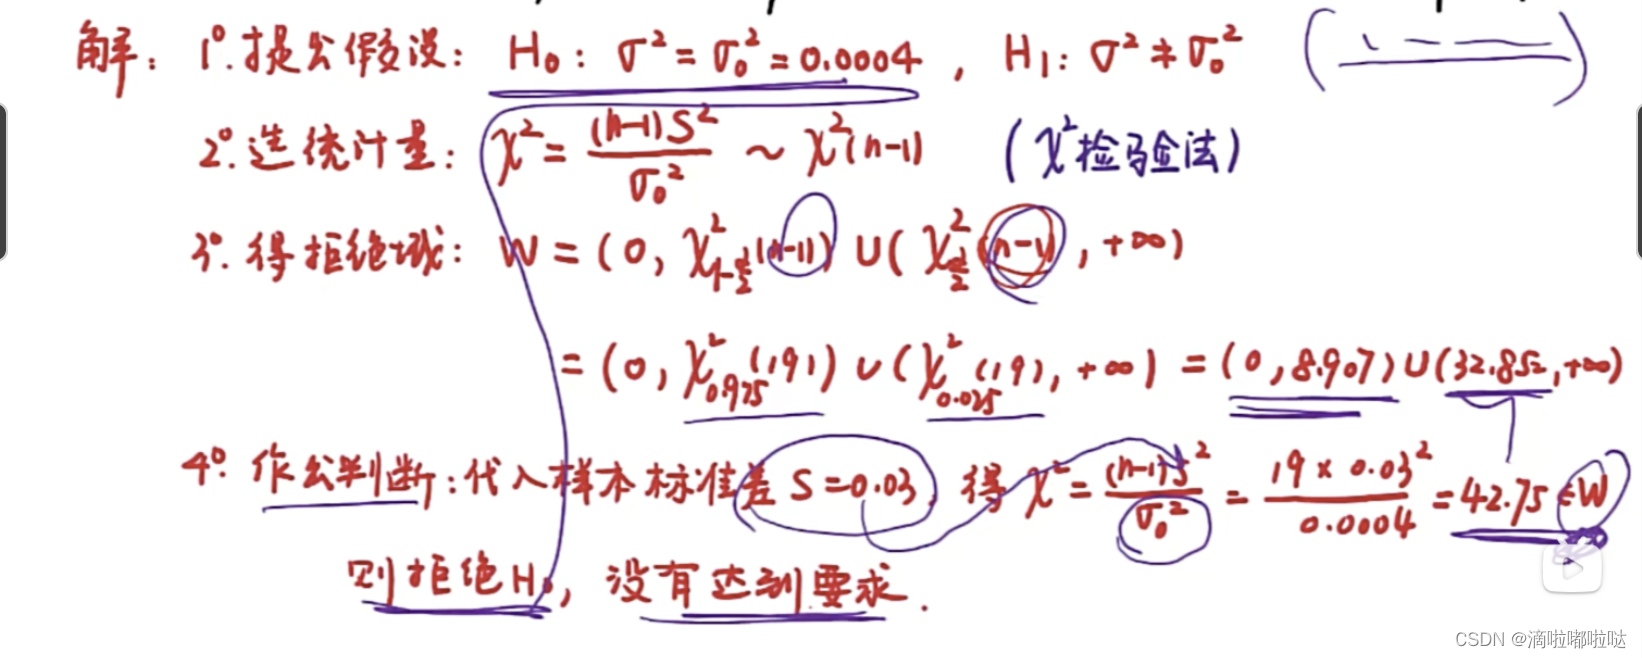 解: 1°.提出假设: H₀: σ² = σ₀² = 0.0004, H₁: σ² ≠ σ₀²
2°.选统计量: χ² = (n-1)S²/σ₀² ~ χ²(n-1) (χ²检验法)
3°.得拒绝域: W = (0, χ²_{1-α/2}(n-1)) ∪ (χ²_{α/2}(n-1), +∞)
= (0, χ²_{0.975}(19)) ∪ (χ²_{0.025}(19), +∞) = (0, 8.907) ∪ (32.852, +∞)
4°.作出判断: 代入样本标准差 S=0.03, 得 χ² = (n-1)S²/σ₀² = 19×0.03²/0.0004 = 42.75 ∈ W
则拒绝H₀, 没有达到要求.
CSDN @滴啦嘟啦哒